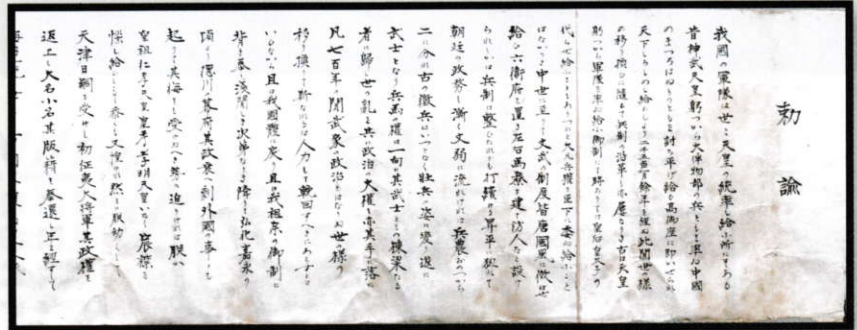 勅諭
我國の軍隊は世々天皇の統率し給ふ所にそある
昔神武天皇躬つから大伴物部の兵ともを率ゐ中國
のまつろはぬものともを討ち平け給ひ高御座に即かせられて
天下しろしめし給ひしより二千五百有餘年を經ぬ此間世の樣
の移り換るに隨ひて兵制の沿革も亦屢なりき古は天皇
躬つから軍隊を率ゐ給ふ御制にて時ありては皇后皇太子の
代らせ給ふこともありつれと大凡兵權を臣下に委ね給ふこと
はなかりき中世に至りて文武の制度皆唐國風に傚はせ
給ひ六衛府を置き左右馬寮を建て防人なと設け
られしかは兵制は整ひたれとも打續ける昇平に狃れて
朝廷の政務も漸く文弱に流れけれは兵農おのつから
二に分れ古の徴兵はいつとなく壯兵の姿に變り遂に
武士となり兵馬の權は一向に其武士ともの棟梁たる
者に歸し世の亂と共に政治の大權も亦其手に落ち
凡七百年の間武家の政治とはなりぬ世の樣の
移り換りて斯なれるは人力もて挽回すへきにあらすとは
いひなから且は我國體に戻り且は我祖宗の御制に
背き奉り浅間しき次第なりき降りて弘化嘉永の
頃より徳川の幕府其政衰へ剰外國の事とも
起りて其侮をも受けぬへき勢に迫りけれは朕か
皇祖仁孝天皇皇考孝明天皇いたく宸襟を
惱し給ひしこそ忝くも又惶けれ然るに朕幼くして
天津日嗣を受けし初征夷大将軍其政權を
返上し大名小名其版籍を奉還し年を經すして